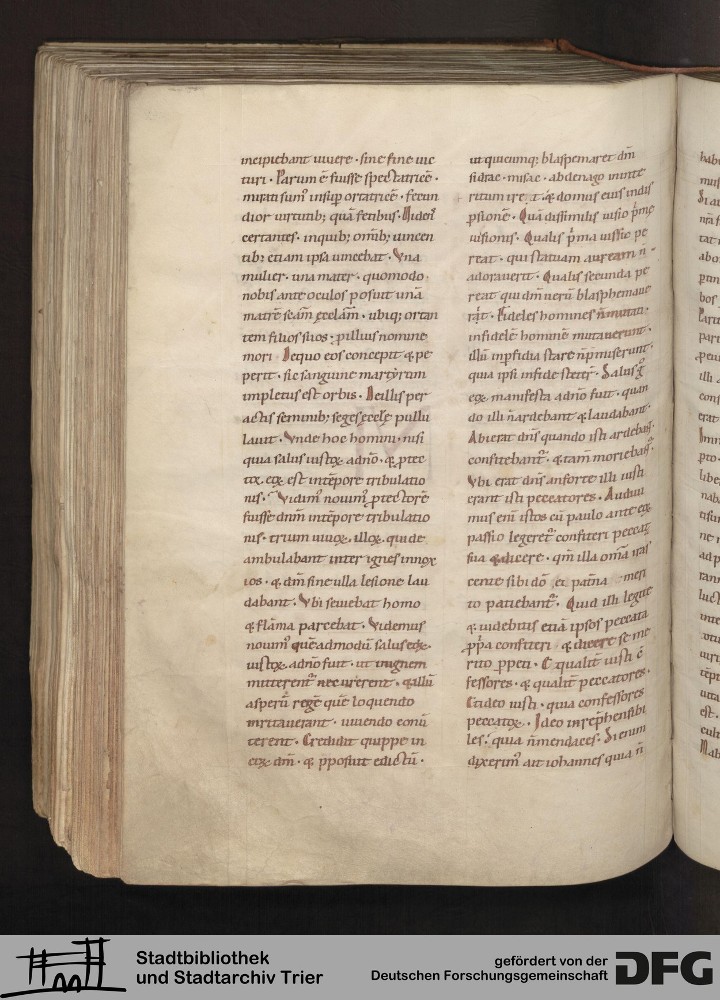 incipiebant uiuere · sine fine uic
turi · Parum ē fuisse spectatricē ·
mirati sumꝰ insup ortatricē · fecun
dior uirtutib; quā fetibus · Videns
certantes · in quib; omīb; uincen
tib; etiam ipsa uincebat · Vna
mulier · una mater · quomodo
nobis ante oculos posuit unā
matrē scām ęcclām · ubiq; ortan
tem filios suos · p illius nomine
mori · De quo eos concepit & pe
perit · sic sanguine martyrum
impletus est orbis · De illis per
actis seminib; seges ęcclę pullu
lauit · Vnde hoc homini · nisi
quia salus iustoꝝ a dn̄o · & ptec
tor eoꝝ est in tēpore tribulatio
nis · Vidimꝰ nouimꝰ ptectorē
fuisse dnm̄ in tēpore tribulatio
nis · trium uiroꝝ · illoꝝ · qui de
ambulabant inter ignes innox
ios · & dm̄ sine ulla lesione lau
dabant · Vbi seuiebat homo
& flāma parcebat · Videmus
nouimꝰ quēadmodū salus eoꝝ ·
iustoꝝ · a dn̄o fuit · ut in ignem
mitterent᷑ nec urerent · & illū
asperū regē quē loquendo
inritauerant · uiuendo conū
terent · Credidit quippe in
eoꝝ dm̄ · & pposuit edictū ·
ut quicumq; blaspemaret dm̄
sidrac · misac · abdenago in inte
ritum iret · & domus eius in dis
psione · Quā dissimilis uisio pmę
uisionis · Qualis pma uissio pe
reat · qui statuam auream n̄
adorauerit · Qualis secunda pe
reat qui dm̄ uerū blasphemaue
rit · Fideles homines n̄ mutati ·
infidelē hominē mutauerunt ·
illū in pfidia stare n̄ pmiserunt ·
quia ipsi in fide steter̄ · Salus g
eoꝝ manifesta a dn̄o fuit · quan
do illi n̄ ardebant & laudabant ·
Aberat dn̄s quando isti ardebant ·
confitebant᷑ · & tam̄ moriebant᷑ ·
Vbi erat dn̄s an forte illi iusti
erant isti peccatores · Audiui
mus eni istos cū paulo ante eoꝝ
passio legeret᷑ confiteri peccata
sua & dicere · qm̄ illa om̄ia iras
cente sibi dō et patria
to patiebant᷑ · Quid illi legite
& uidebitis etiā ipsos peccata
ppa confiteri & dicere se me
rito ppeti · Et qualit̄ iusti ē
fessores · & qualit̄ peccatores ·
Et ideo iusti · quia confessores
peccatoꝝ · Ideo inrephensibi
les · quia n̄ mendaces · Si enim
dixerimꝰ ait iohannes quia n̄
Stadtbibliothek
und Stadtarchiv Trier
gefördert von der
Deutschen Forschungsgemeinschaft
DFG